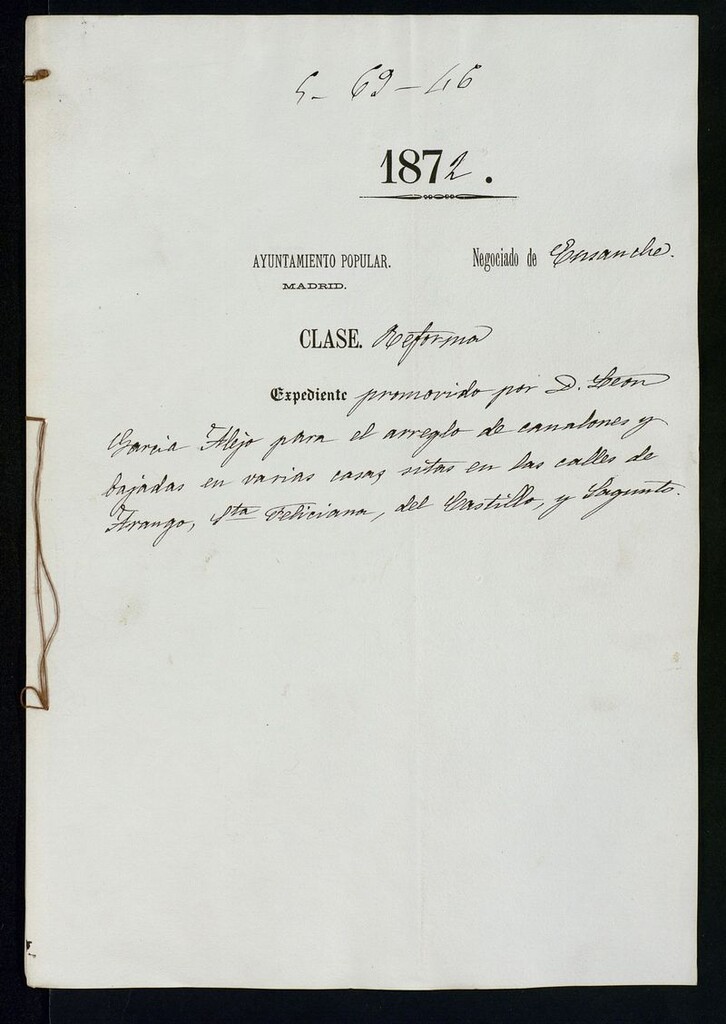 5-69-46
1872.
AYUNTAMIENTO POPULAR. Negociado de Ensanche.
MADRID.
CLASE. Reforma
Expediente promovido por D. Leon
Garcia Alejo para el arreglo de canalones y
bajadas en varias casas sitas en las calles de
Arango, Sta Feliciana, del Castillo, y Sagunto.